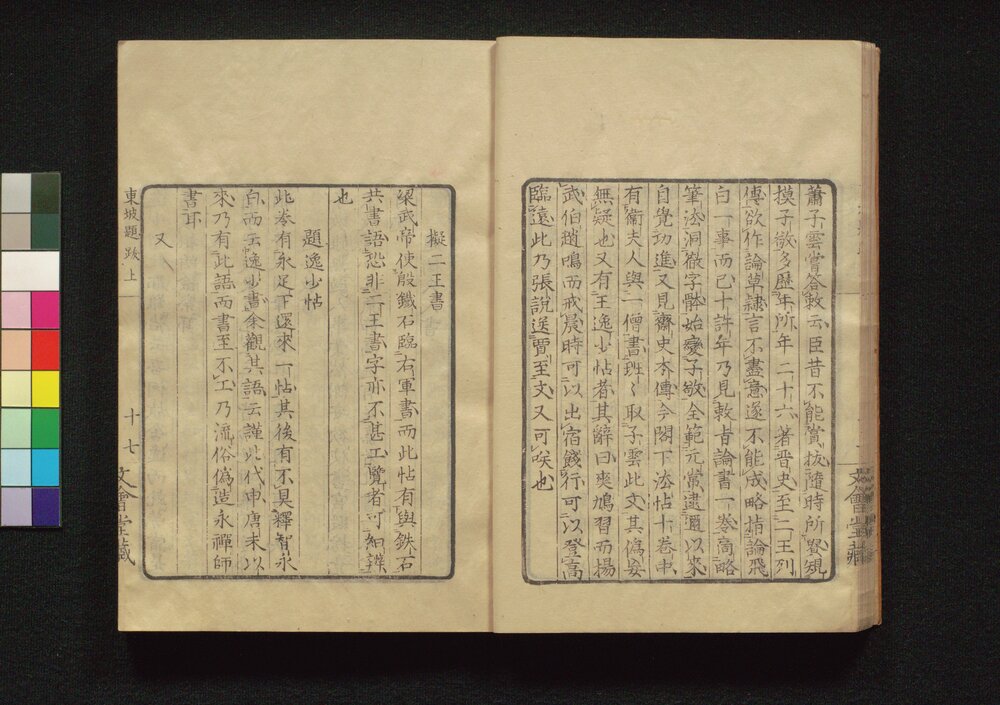 蕭子雲嘗答敕云臣昔不能賞拔隨時所貴規
摸子敬多歷年所年二十六著晋史至二王列
傳欲作論草隷言不盡意遂不能成略指論飛
白一事而已十許年乃見敕旨論書一卷商略
筆法洞徹字體始變子敬全範元常逮邇以來
自覺功進又見齋史本傳今閣下法帖十卷中
有衛夫人與一僧書班〻取子雲此文其偽妄
無疑也又有王逸少帖者其辭曰爽鳩習而揚
武伯趙鳴而戒晨時可以出宿餞行可以登高
臨遠此乃張說送賈至文又可咲也
文會堂藏
擬二王書
梁武帝使殷鐵石臨右軍書而此帖有與鉄石
共書語恐非二王書字亦不甚工覽者可細辨
也
題逸少帖
此卷有永足下還來一帖其後有不具釋智永
白而云逸少書余觀其語云謹此代申唐末以
來乃有此語而書至不工乃流俗偽造永禪師
書耳
又
東坡題跋上
十七
文會堂藏